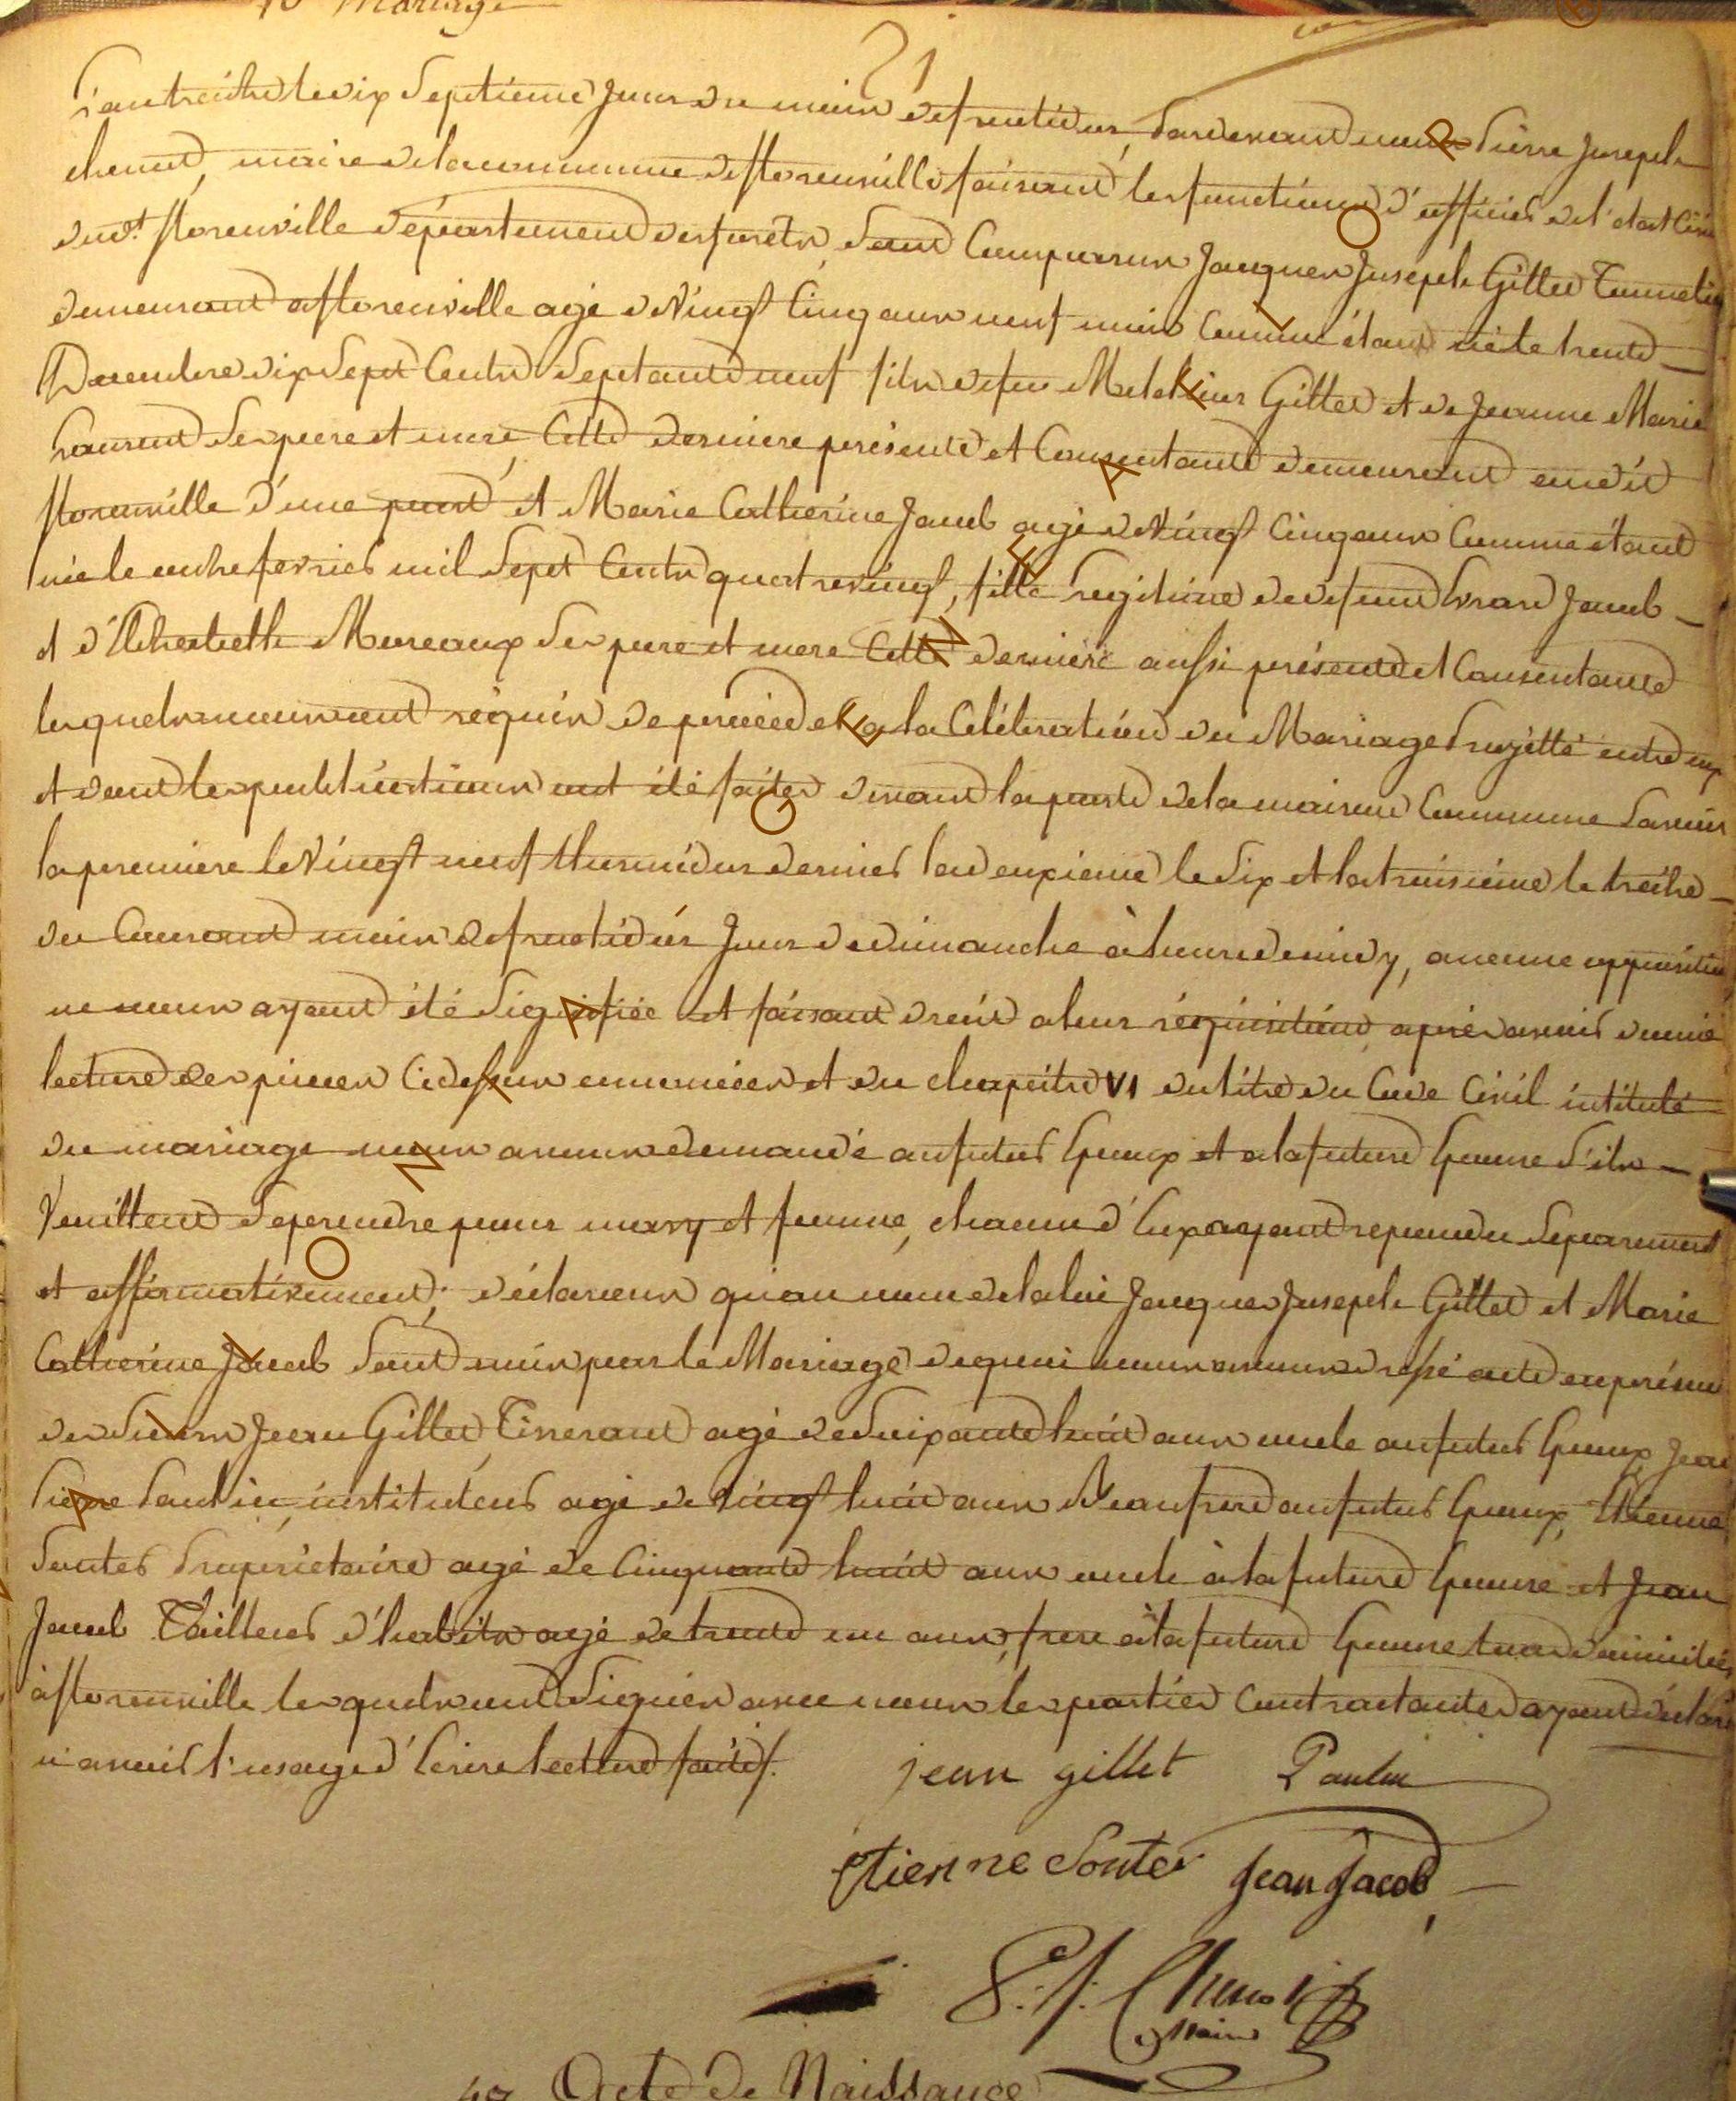 10 Mariage
21
L'an treitze le dix Septieme Jour du mois de fructidor, Pardevant nous Pierre Joseph
chenot, maire de la commune de florenville faisant les fonctions d'officier de l'etat Civil
dudt. florenville département des forets, Sont Comparus Jacques Joseph Gillet Tonnelier
demeurant a florenville agé de Vingt Cinq ans neuf mois Comme étant né le trente
Decembre dix Sept Cents Septante neuf fils de feu Melchior Gillet et de Jeanne Marie
Laurent Ses pere et mere, Cette derniere présente et Consentante demeurant audit
florenville d'une part, et Marie Catherine Jacob agé de Vingt Cinq ans Comme étant
née le onze fevrier mil Sept Cents quatre vingt, fille Legitime de defunt Jacob
et d'Elisabeth Moreaux Ses pere et mere Cette derniere aussi présente et Consentante
lesquels nous ont requis de procéder a la Célébration du Mariage Projetté entre eux
et dont les publications ont été faites devant la porte de la maison Commune Savoir
la premiere le Vingt neuf thermidor dernier la deuxieme le Six et la troisieme le treitze
du Courant mois de fructidor Jour de dimanche à heure de midy, aucune opposition
ne nous ayant été Signifiée et faisant droit a leur réquisition, après avoir donné
lecture des pieces Cidessus enoncées et du chapitre VI du titre du Code Civil intitulé
du mariage nous avons demandé au futur Epoux et a la future Epouse S'ils
Veuillent Se prendre pour mary et femme, chacun d'Eux ayant repondu Separement
et affirmativement; déclarons qu'au nom de la loi Jacques Joseph Gillet et Marie
Catherine Jacob Sont unis par le Mariage de quoi nous avons dressé acte en présence
des Sieurs Jean Gillet Tisserant agé de Soixante huit ans oncle au futur Epoux, Jean
Pierre Paulin, instituteur agé de Vingt huit ans Beaufrere au futur Epoux, Etienne
Souter Propriétaire agé de Cinquante huit ans oncle à la future Epouse et Jean
Jacob Tailleur d'habits agé de trente un ans, frere à la future Epouse tous domiciliés
à florenville lesquels ont Signés avec nous les parties Contractantes ayant déclaré
n'avoir l'usage d'Ecrire lecture faite.
jean gillet Paulin
Etienne Souter Jean Jacob
P. J. Chenot
Maire
Acte de Naissance